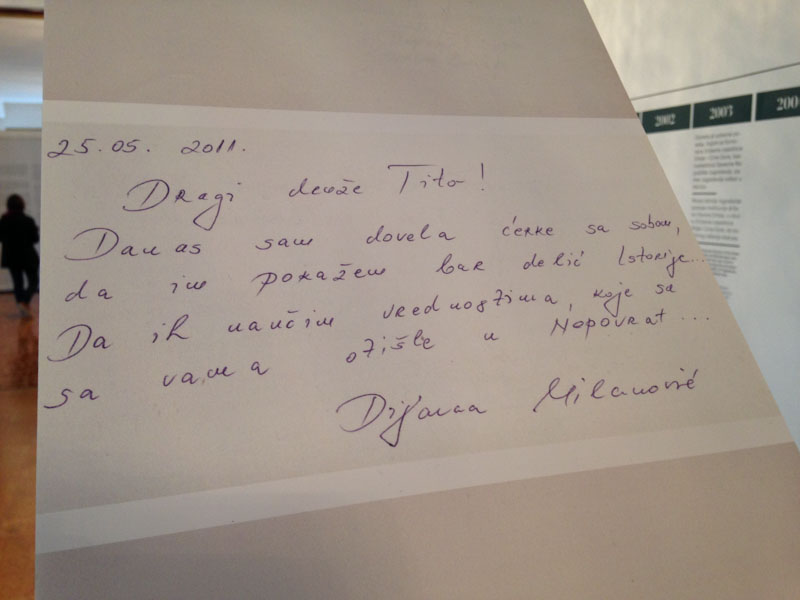 25.05. 2011.
Dragi druže Tito!
Danas sam dovela ćerke sa sobom,
da im pokažem bar delić Istorije...
Da ih naučim vrednostima, koje sa
sa vama otišle u Nepovrat...
Dijana Milanović
2002
2003
200